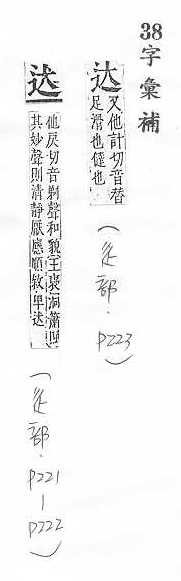 38字彙補
达
又他計切音替
足滑也 也
(辵部.P223)
迖
他戾切音剃聲和貌王褒洞簫賦
其妙聲則清靜厭應順敘卑迖
(辵部.P221-P222)